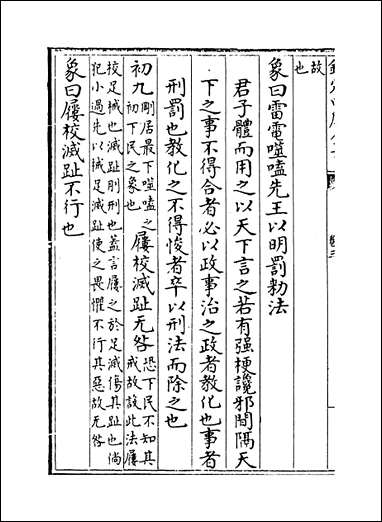 故
也
象曰雷電噬嗑先王以明罰勑法
君子體而用之以天下言之若有强梗讒邪間隔天
下之事不得合者必以政事治之政者教化也事者
刑罰也教化之不得悛者卒以刑法而除之也
初九剛居最下噬嗑之初下民之象也屨校滅趾无咎恐下民不知其戒故設此法屨
校足械也滅趾刖刑也葢言屨之於足滅傷其趾也倘
犯小過先以械足滅趾使之畏懼不行其惡故无咎
象曰屨校滅趾不行也